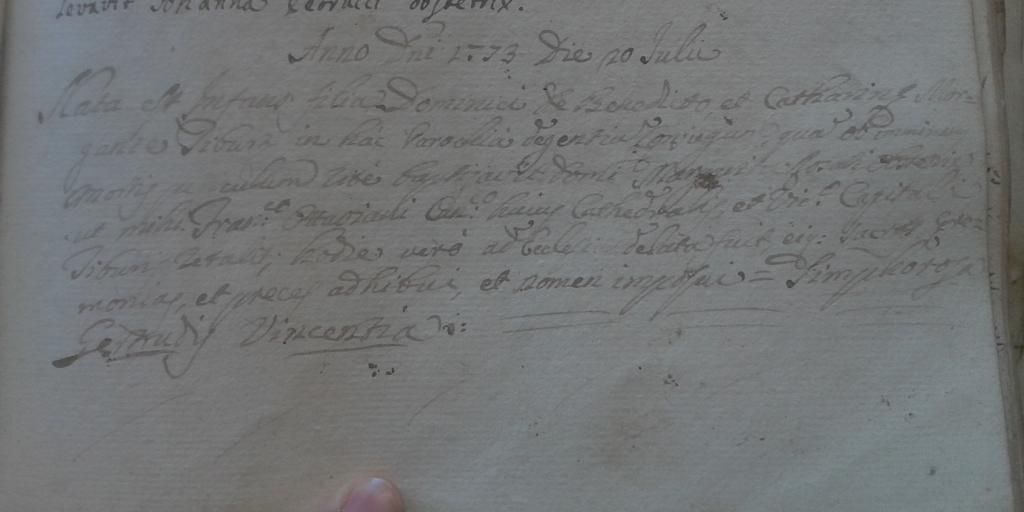 levavit Johanna Petrucci obstetrix.
Anno Dni 1773 Die 20 Julii
Nata est Infans filia Dominici de Benedicto et Catharinę Mor-
gante Tiburi in hac Parochia degentiu Conjugum, qua ob imminens
mortis periculum ritè baptizavit domi
ut mihi Fran:cus Canc:s huius Cathedralis, et Vic:s
Tibur: retulit; hodie verò ad Ecclesia delata fuit eiq: sacras Cere-
monias, et preces adhibui, et nomen imposui = Simphorosa
Gertrudis Vincentia :